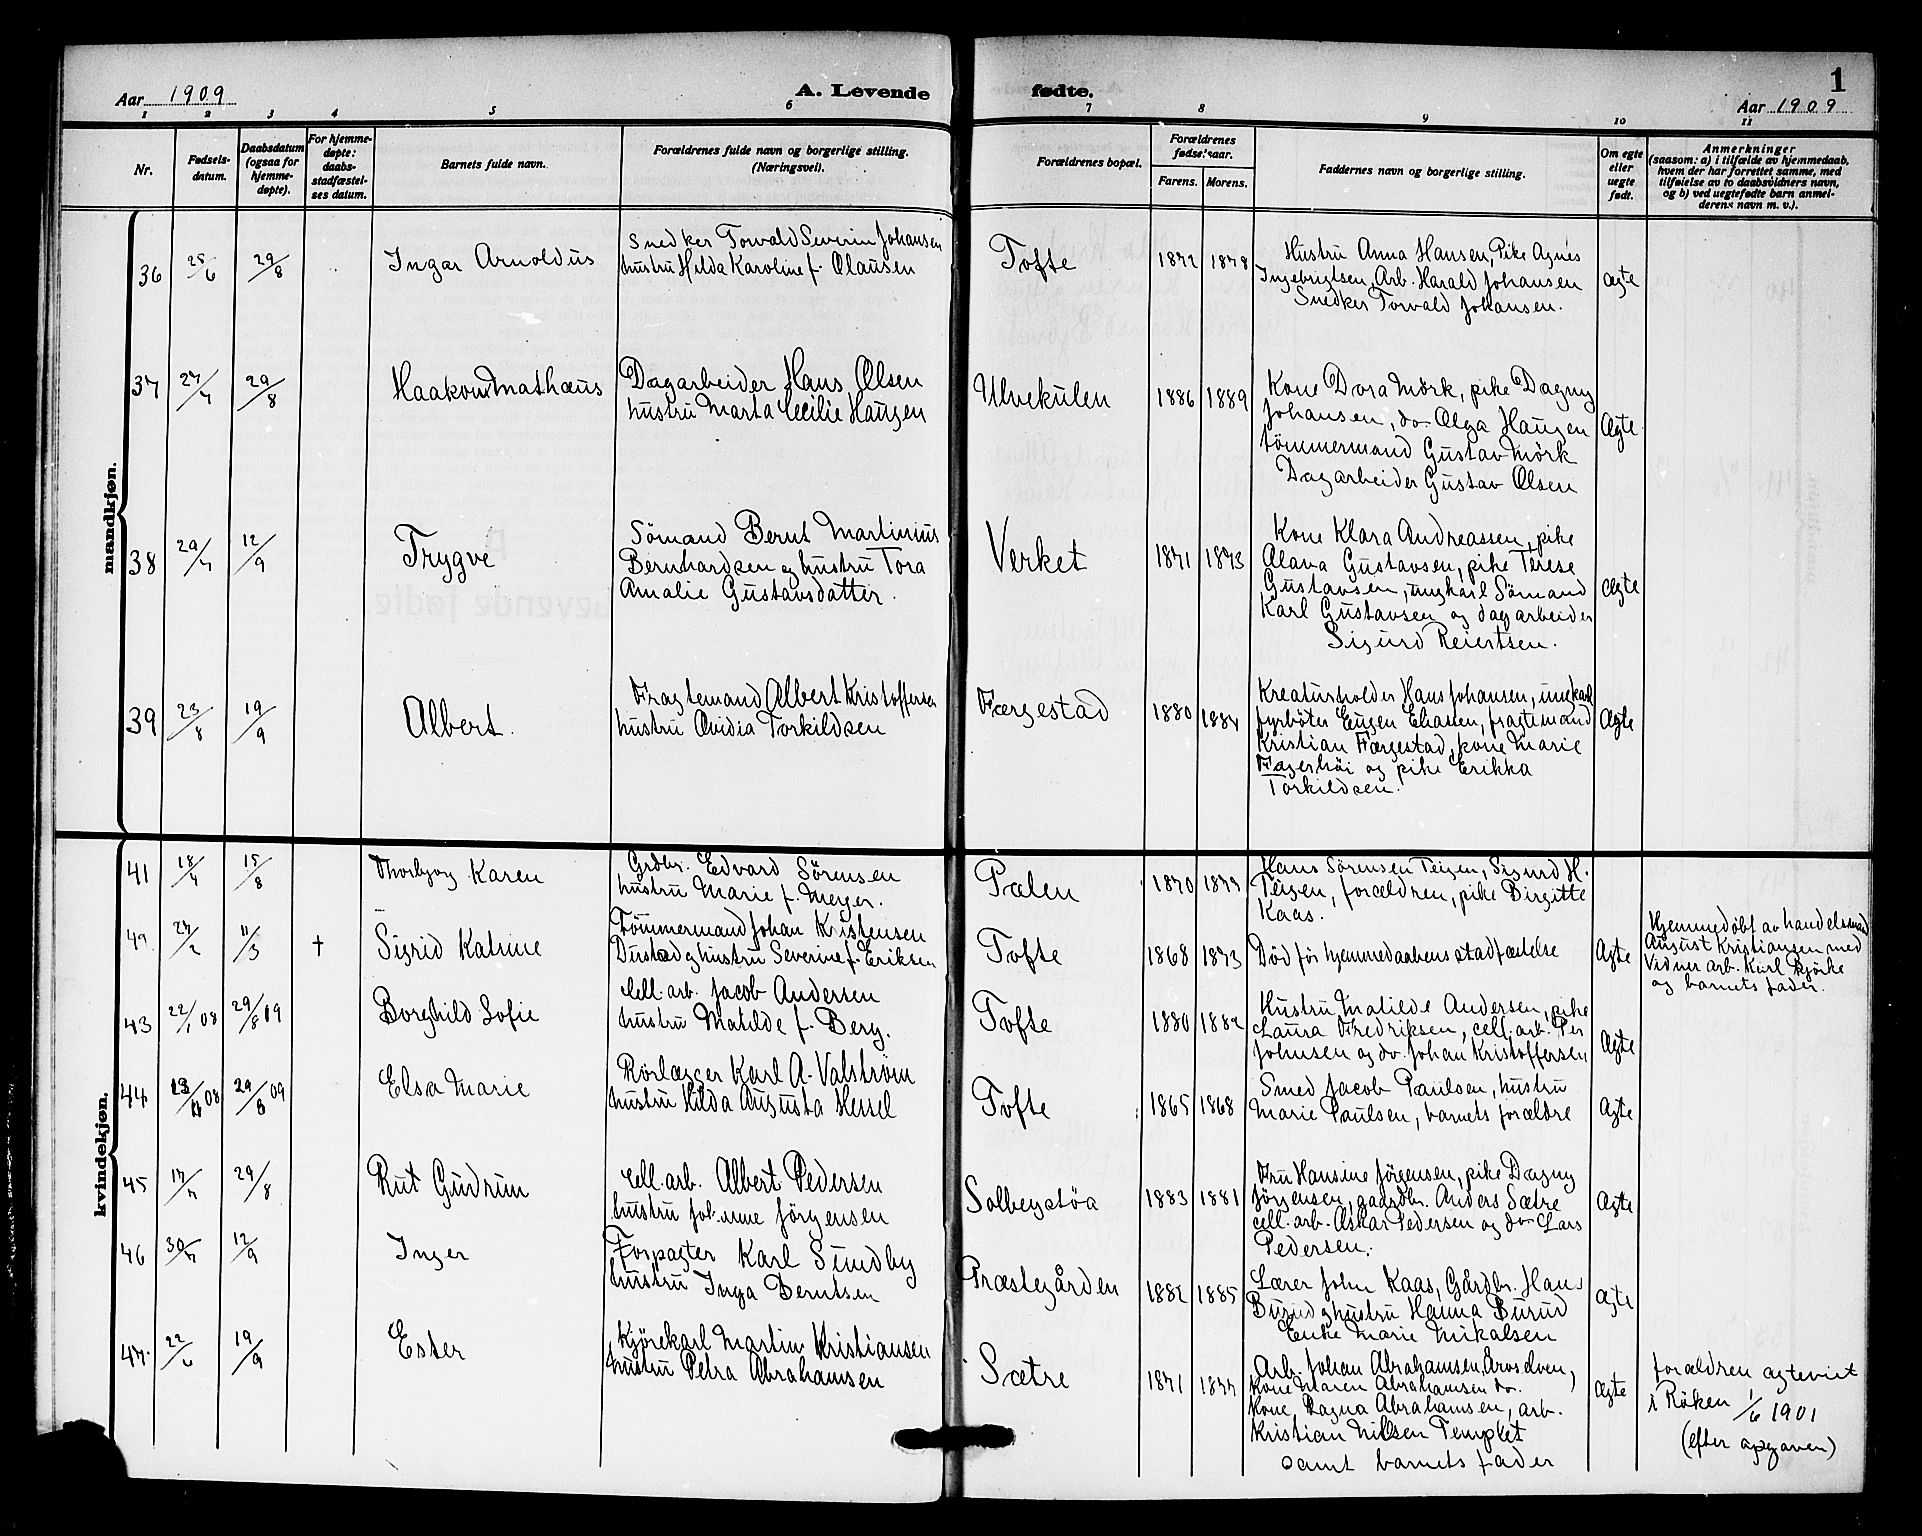 Aar 1909
A. Levende
fødte.
1
Aar 1909
1 2 3 4 5 6 7 8 9 10 11
Nr.
Fødsels-
datum.
Daabsdatum
(ogsaa for
hjemme-
døpte).
For hjemme-
døpte:
daabs-
stadfæstel-
ses datum.
Barnets fulde navn.
Forældrenes fulde navn og borgerlige stilling.
(Næringsvei).
Forældrenes bopæl.
Forældrenes
fødselsaar.
Farens. Morens.
Faddernes navn og borgerlige stilling.
Om egte
eller
uegte
født.
Anmerkninger
(saasom: a) i tilfælde av hjemmedaab,
hvem der har forrettet samme, med
tilføielse av to daabsvidners navn,
og b) ved uegtefødte barn anmel-
derens navn m. v.).
mandkjøn.
36 25/6 29/8
Ingar Arnoldus
Snedker Torvald Severin Johansen
hustru Hilda Karoline f. Olausen
Tofte
1872 1878
Hustru Anna Hansen, Pike Agnes
Ingebrigtsen, Arb. Harald Johansen
Snedker Torvald Johansen.
Ægte
37 27/7 29/8
Haakon Mathæus
Dagarbeider Hans Olsen
hustru Marta Cecilie Haugen
Ulvekulen
1886 1889
Kone Dora Mörk, pike Dagny
Johansen, do Olga Haugen
tömmermand Gustav Mörk
Dagarbeider Gustav Olsen
Ægte
38 29/7 12/9
Trygve
Sömand Bernt Martinius
Bernhardsen og hustru Tora
Amalie Gustavsdatter.
Verket
1871 1873
Kone Klara Andreassen, pike
Alava Gustavsen, pike Terese
Gustavsen, ungkarl Sömand
Karl Gustavsen og dagarbeider
Sigurd Reiertsen.
Ægte
39 23/8 19/9
Albert.
Fragtemand Albert Kristoffersen
hustru Ovidia Torkildsen
Færgestad
1880 1884
Kreaturholder Hans Johansen, ungkarl
fyrböter Eugen Eliassen, fragtemand
Kristian Færgestad, kone Marie
Fagerhöi og pike Erikka
Torkildsen.
Ægte
kvindekjøn.
41 18/7 15/8
Thorbjorg Karen
Grdbr. Edvard Sörensen
hustru Marie f. Meyer.
Pælen
1870 1877
Hans Sörensen Teigen, Sigurd H.
Teigen, forældren, pike Birgitte
Kaas.
42 27/2 11/3 †
Sigrid Katrine
Tömmermand Johan Kristensen
Dustad og hustru Severine f. Eriksen
Tofte
1868 1873
Död för hjemmedaabens stadfæstelse
Ægte
Hjemmedöbt av handelsmand
August Kristiansen med
Vidner arb. Karl Björke
og barnets fader.
43 22/1 08 29/8 09
Borghild Sofie
Cell. arb. Jacob Andersen
hustru Matilde f. Berg.
Tofte
1880 1882
Hustru Matilde Andersen, pike
Laura Fredriksen, cell. arb. Per
Johnsen og do. Johan Kristoffersen
Ægte
44 08 09
Elsa Marie
Rörlægger Karl A. Valström
hustru Hilda Augusta Hessel
Tofte
1865 1868
Smed Jacob Paulsen, hustru
Marie Paulsen, barnets forældre
Ægte
45 17/7 29/8
Rut Gudrun
Cell. arb. Albert Pedersen
hustru Johanne Jörgensen
Solbergstøa
1883 1881
Fru Hansine Jörgensen, pike Dagny
Jörgensen, gaardbr. Anders Sætre
cell. arb. Oskar Pedersen og do Lars
Pedersen.
Ægte
46 30/7 12/9
Inger
Forpagter Karl Sundby
hustru Inga Berntsen
Præstegården
1882 1885
Lærer John Kaas, Gårdbr. Hans
Burud og hustru Hanna Burud
Enke Marie Mikalsen
Ægte
47. 22/6 19/9
Ester
Kjörekarl Martin Kristiansen
hustru Petra Abrahamsen
Sætre
1871 1877
Arb. Johan Abrahamsen, Åroselven,
Kone Maren Abrahamsen do.
Kone Ragna Abrahamsen, arb.
Kristian Nilsen Templet
samt barnets fader
Ægte
forældren egteviet
i Röken 1/6 1901
(efter opgaven)